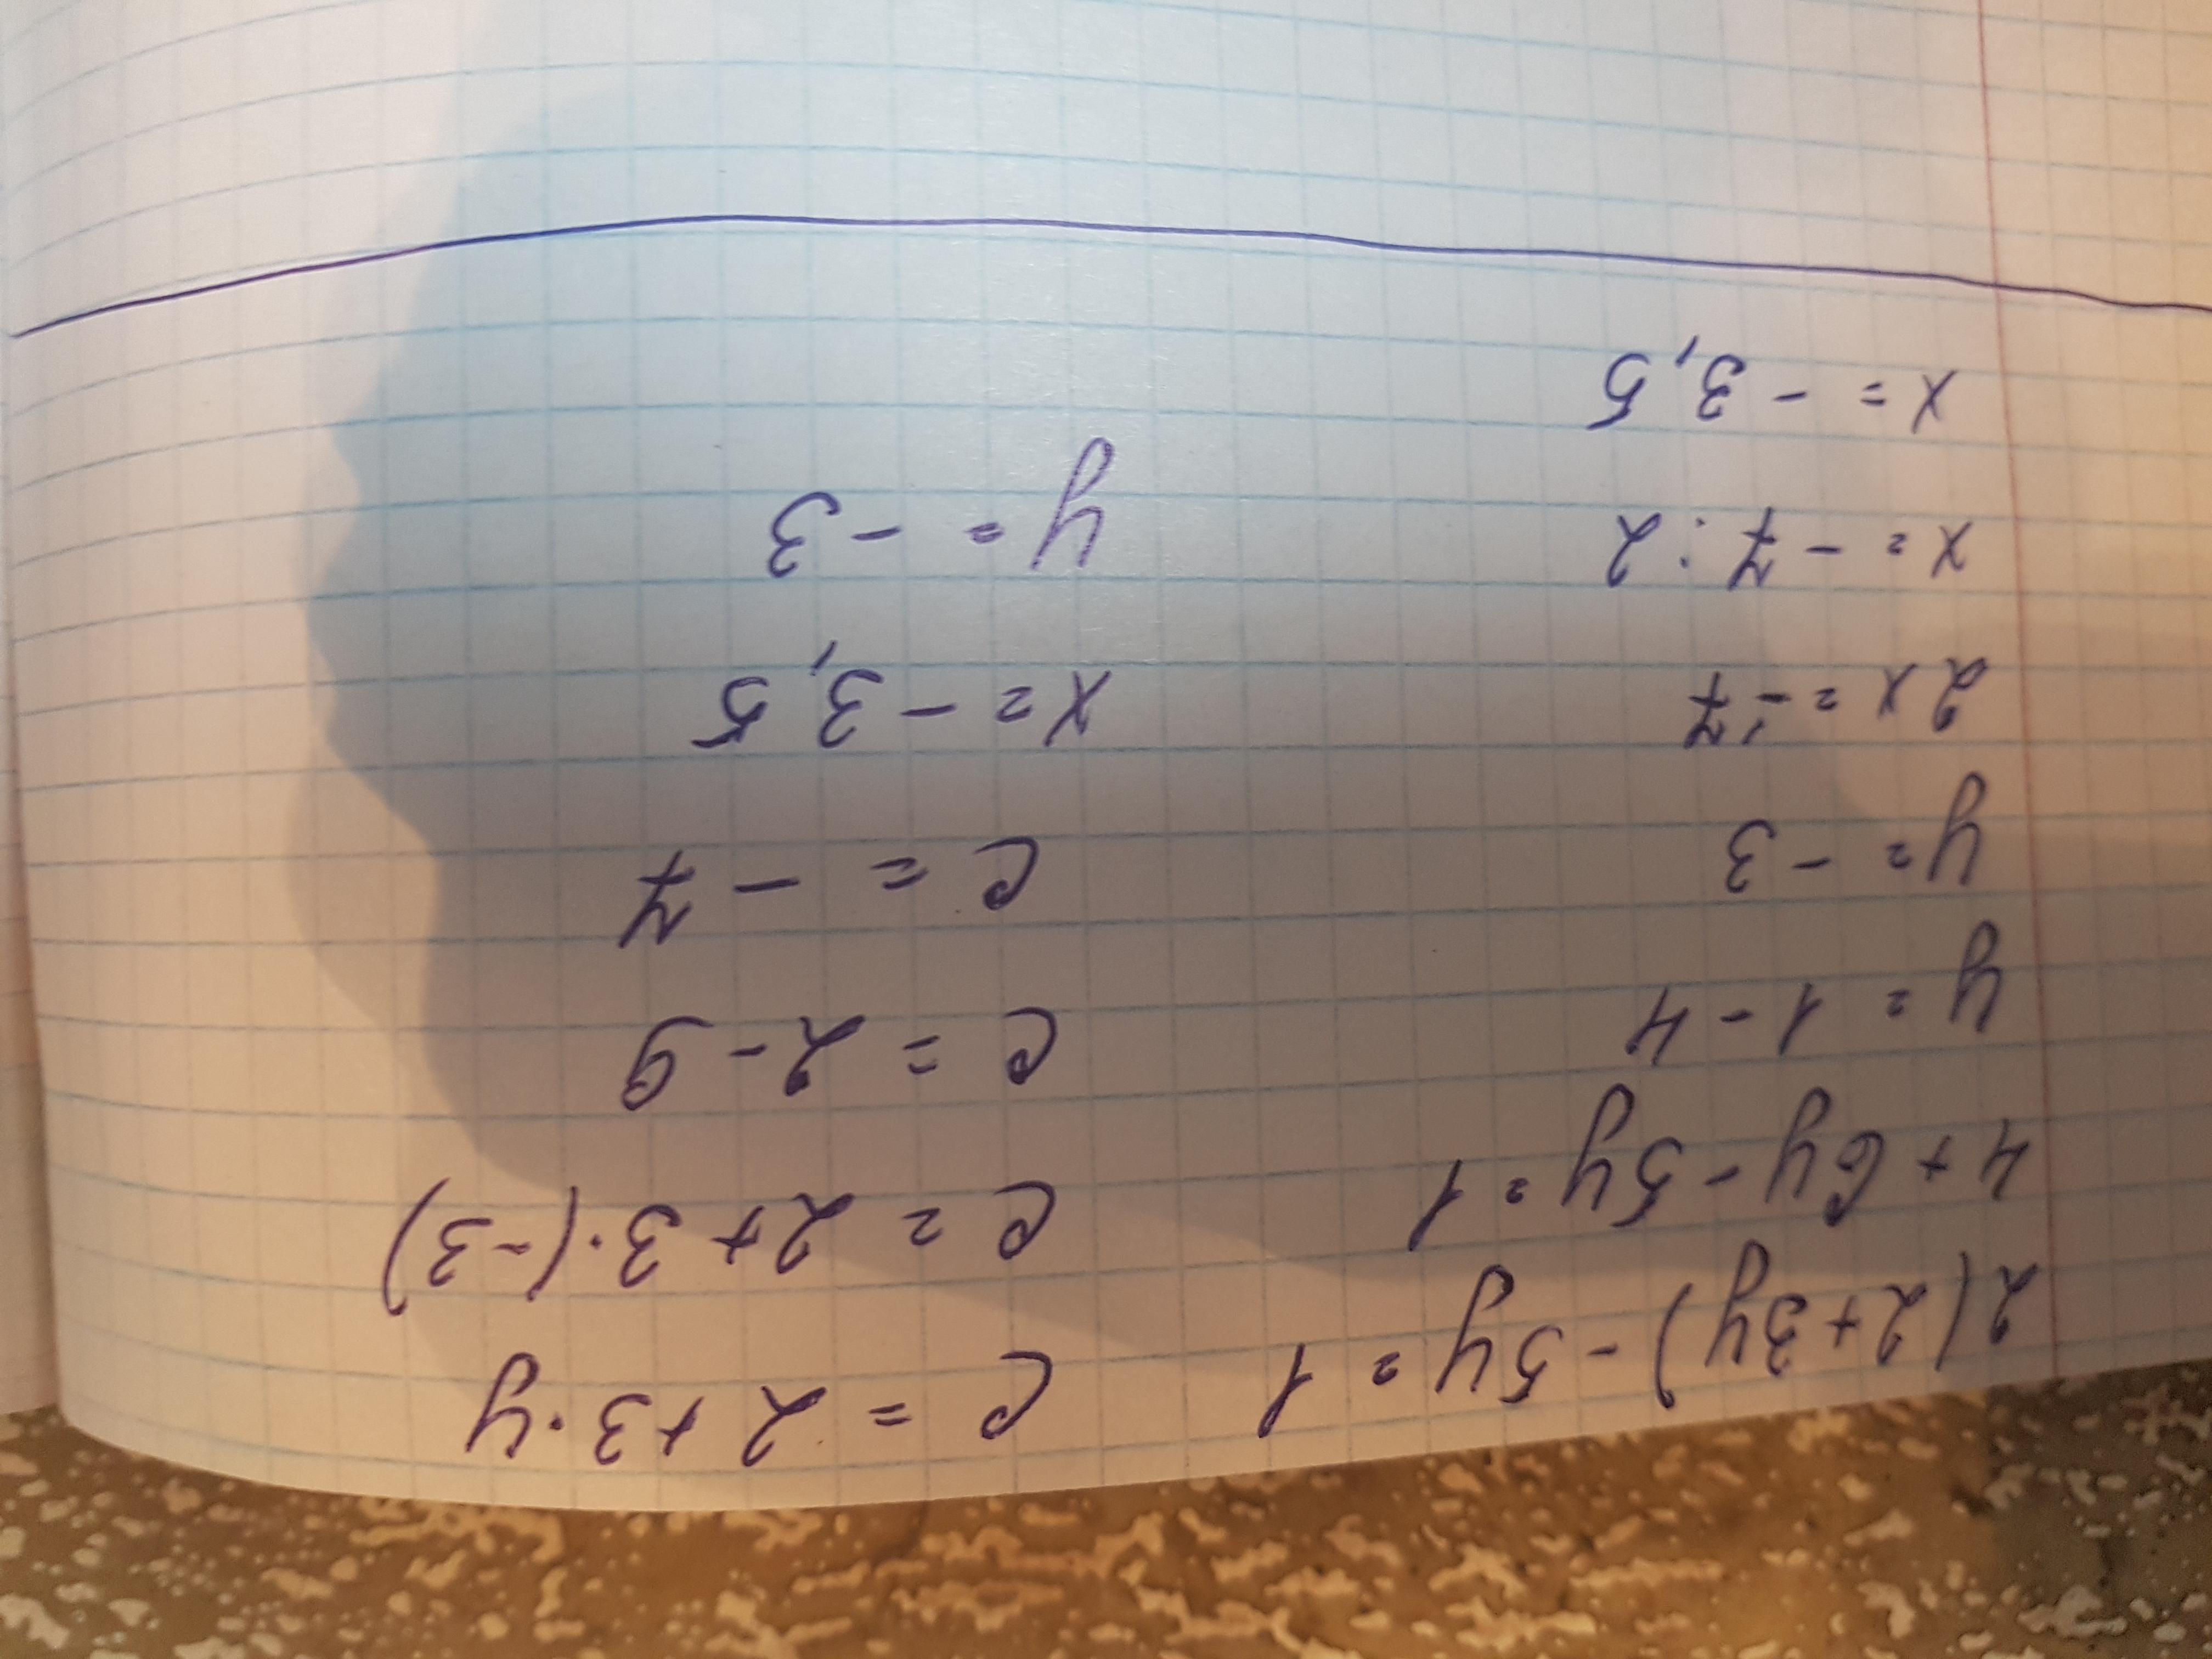 2(2+3y)-5y=1
4+6y-5y=1
y=1-4
y=-3
2x=-7
x=-7:2
x=-3,5
c=2+3·y
c=2+3·(-3)
c=2-9
c=-7
x=-3,5
y=-3